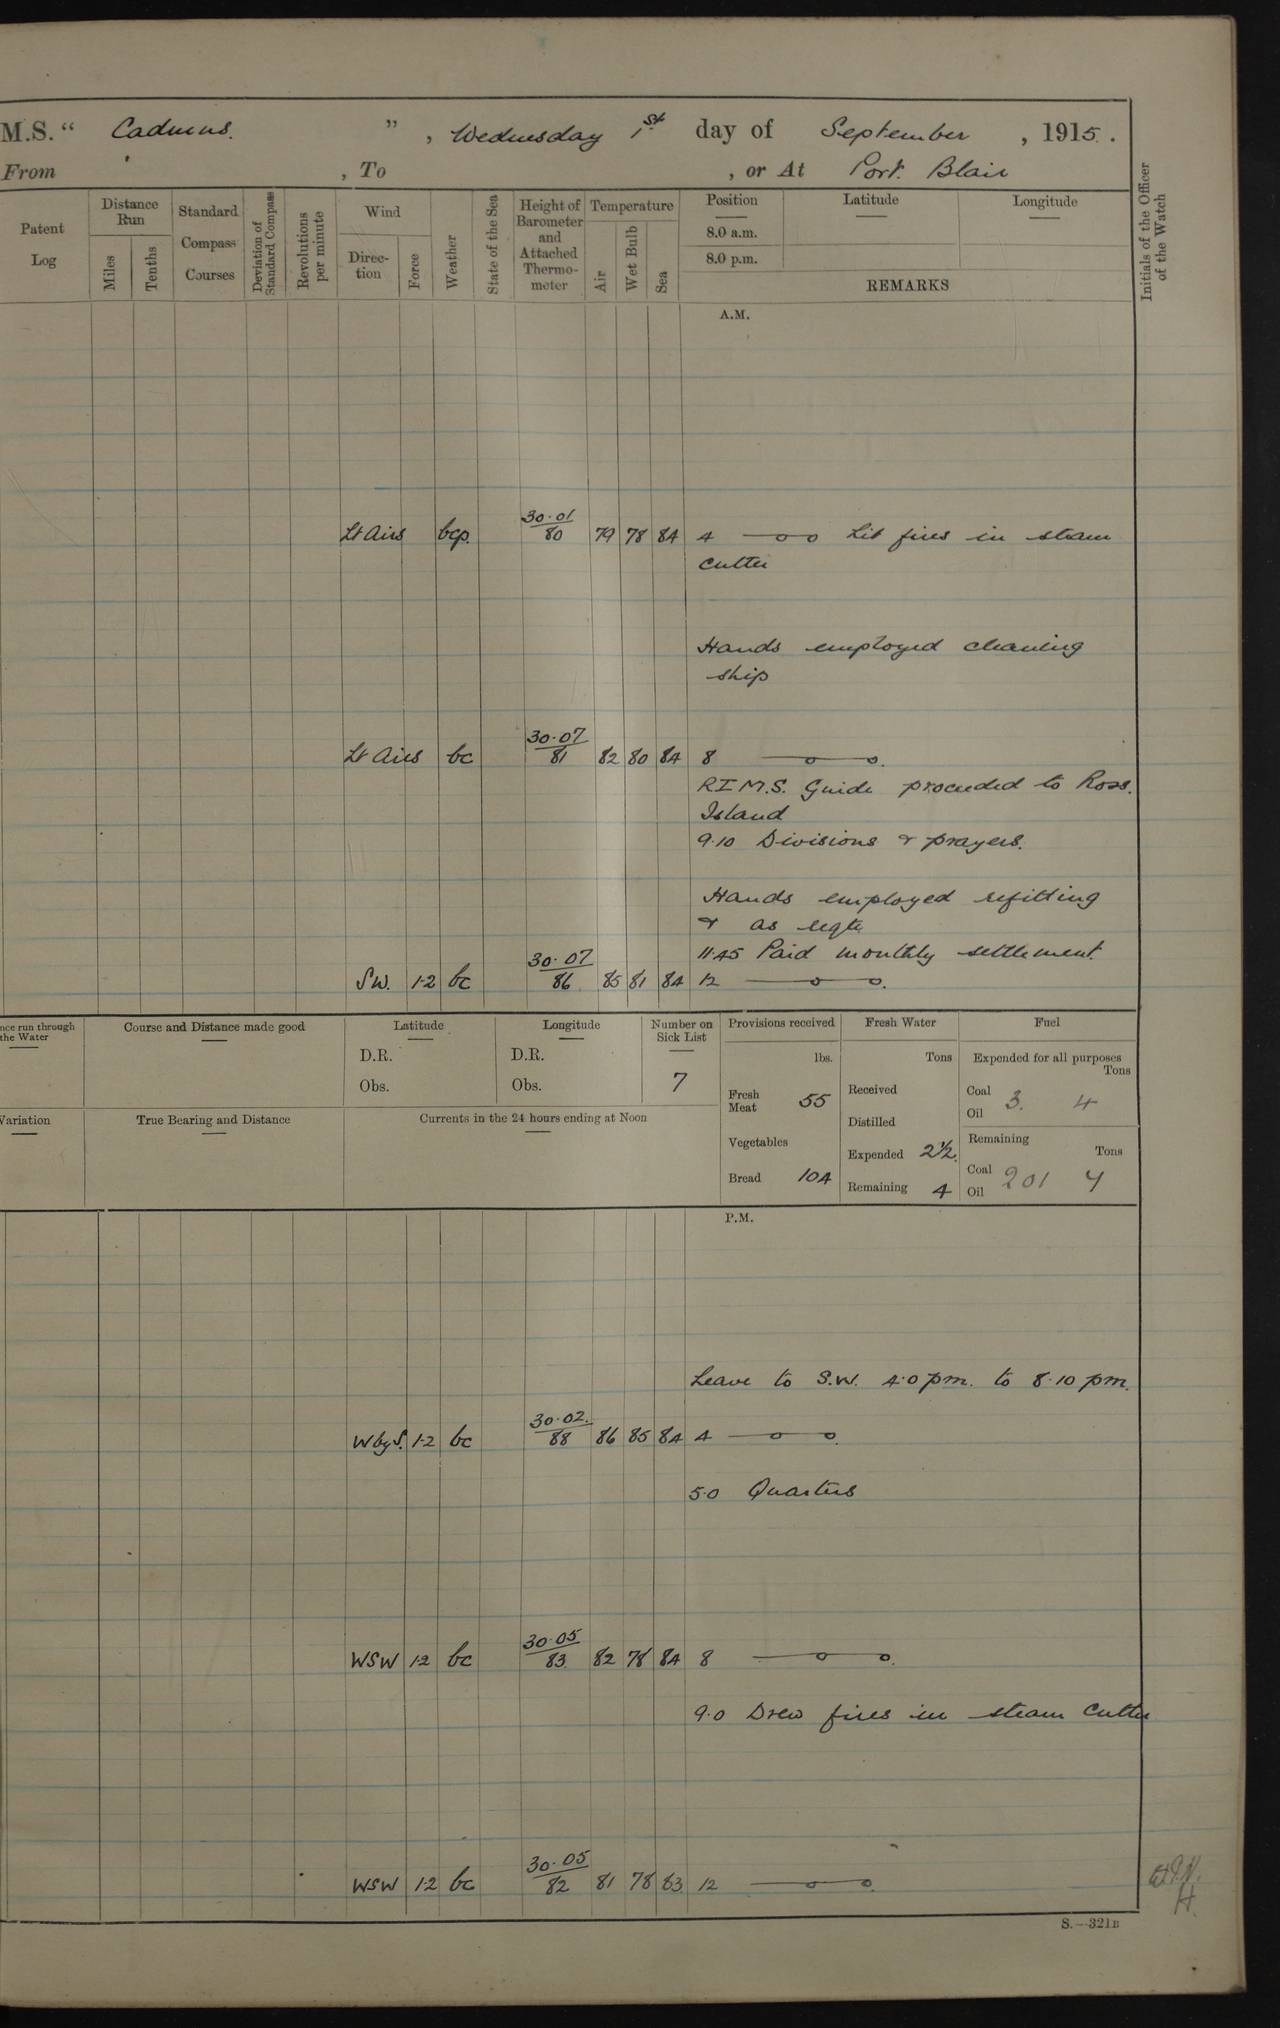 M.S. “ Cadmus. ” , Wednesday 1st day of September , 1915.
From , To , or At Port Blair
Initials of the Officer of the Watch
Patent Log
Distance Run
Miles
Tenths
Standard Compass Courses
Deviation of Standard Compass
Revolutions per minute
Wind
Direc-tion
Force
Weather
State of the Sea
Height of Barometer and Attached Thermo-meter
Temperature
Air
Wet Bulb
Sea
Position Latitude Longitude
8.0 a.m.
8.0 p.m.
REMARKS
A.M.
Lt Airs bcp. 30·01/80 79 78 84 4 —o—o Lit fires in steam
cutter
Hands employed cleaning
ship
Lt Airs bc 30·07/81 82 80 84 8 —o—o.
R I M.S. Guide proceeded to Ross.
Island
9·10 Divisions & prayers.
Hands employed refitting
& as reqte
11·45 Paid monthly settlement.
SW. 1-2 bc 30·07/86 85 81 84 12 —o—o.
nce run through the Water
Course and Distance made good
Latitude
D.R.
Obs.
Longitude
D.R.
Obs.
Number on Sick List
7
Provisions received
lbs.
Fresh Meat 55
Vegetables
Bread 104
Fresh Water
Tons
Received
Distilled
Expended 2½.
Remaining 4
Fuel
Expended for all purposes
Tons
Coal
Oil
3. 4
Remaining
Tons
Coal
Oil
201 4
Variation
True Bearing and Distance
Currents in the 24 hours ending at Noon
P.M.
Leave to S.W. 4·0 pm. to 8·10 pm.
W by S. 1-2 bc 30·02./88 86 85 84 4 —o—o.
5·0 Quarters
WSW 1-2 bc 30·05/83. 82 78 84 8 —o—o.
9·0 Drew fires in steam cutter
WSW 1-2 bc 30·05/82 81 78 83 12 —o—o.
H.
S.—321B